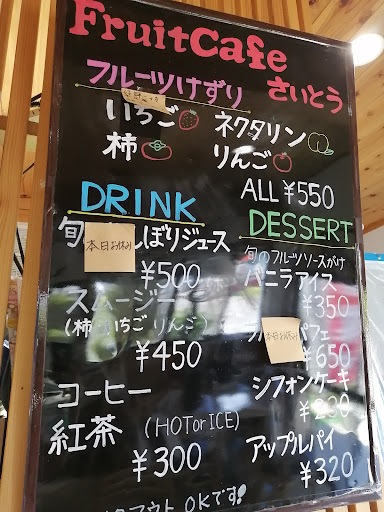 FruitCafe
フルーツけずり さいとう
いちご ネクタリン
柿 りんご
ALL ¥550
DRINK
DESSERT
旬 しぼりジュース
本日お休み
¥500
スムージー
(柿 いちご りんご)
¥450
コーヒー
紅茶 (HOT or ICE)
¥300
旬のフルーツソースがけ
バニラアイス
¥350
パフェ
本日お休み
¥650
シフォンケーキ
¥230
アップルパイ
¥320
OKです!